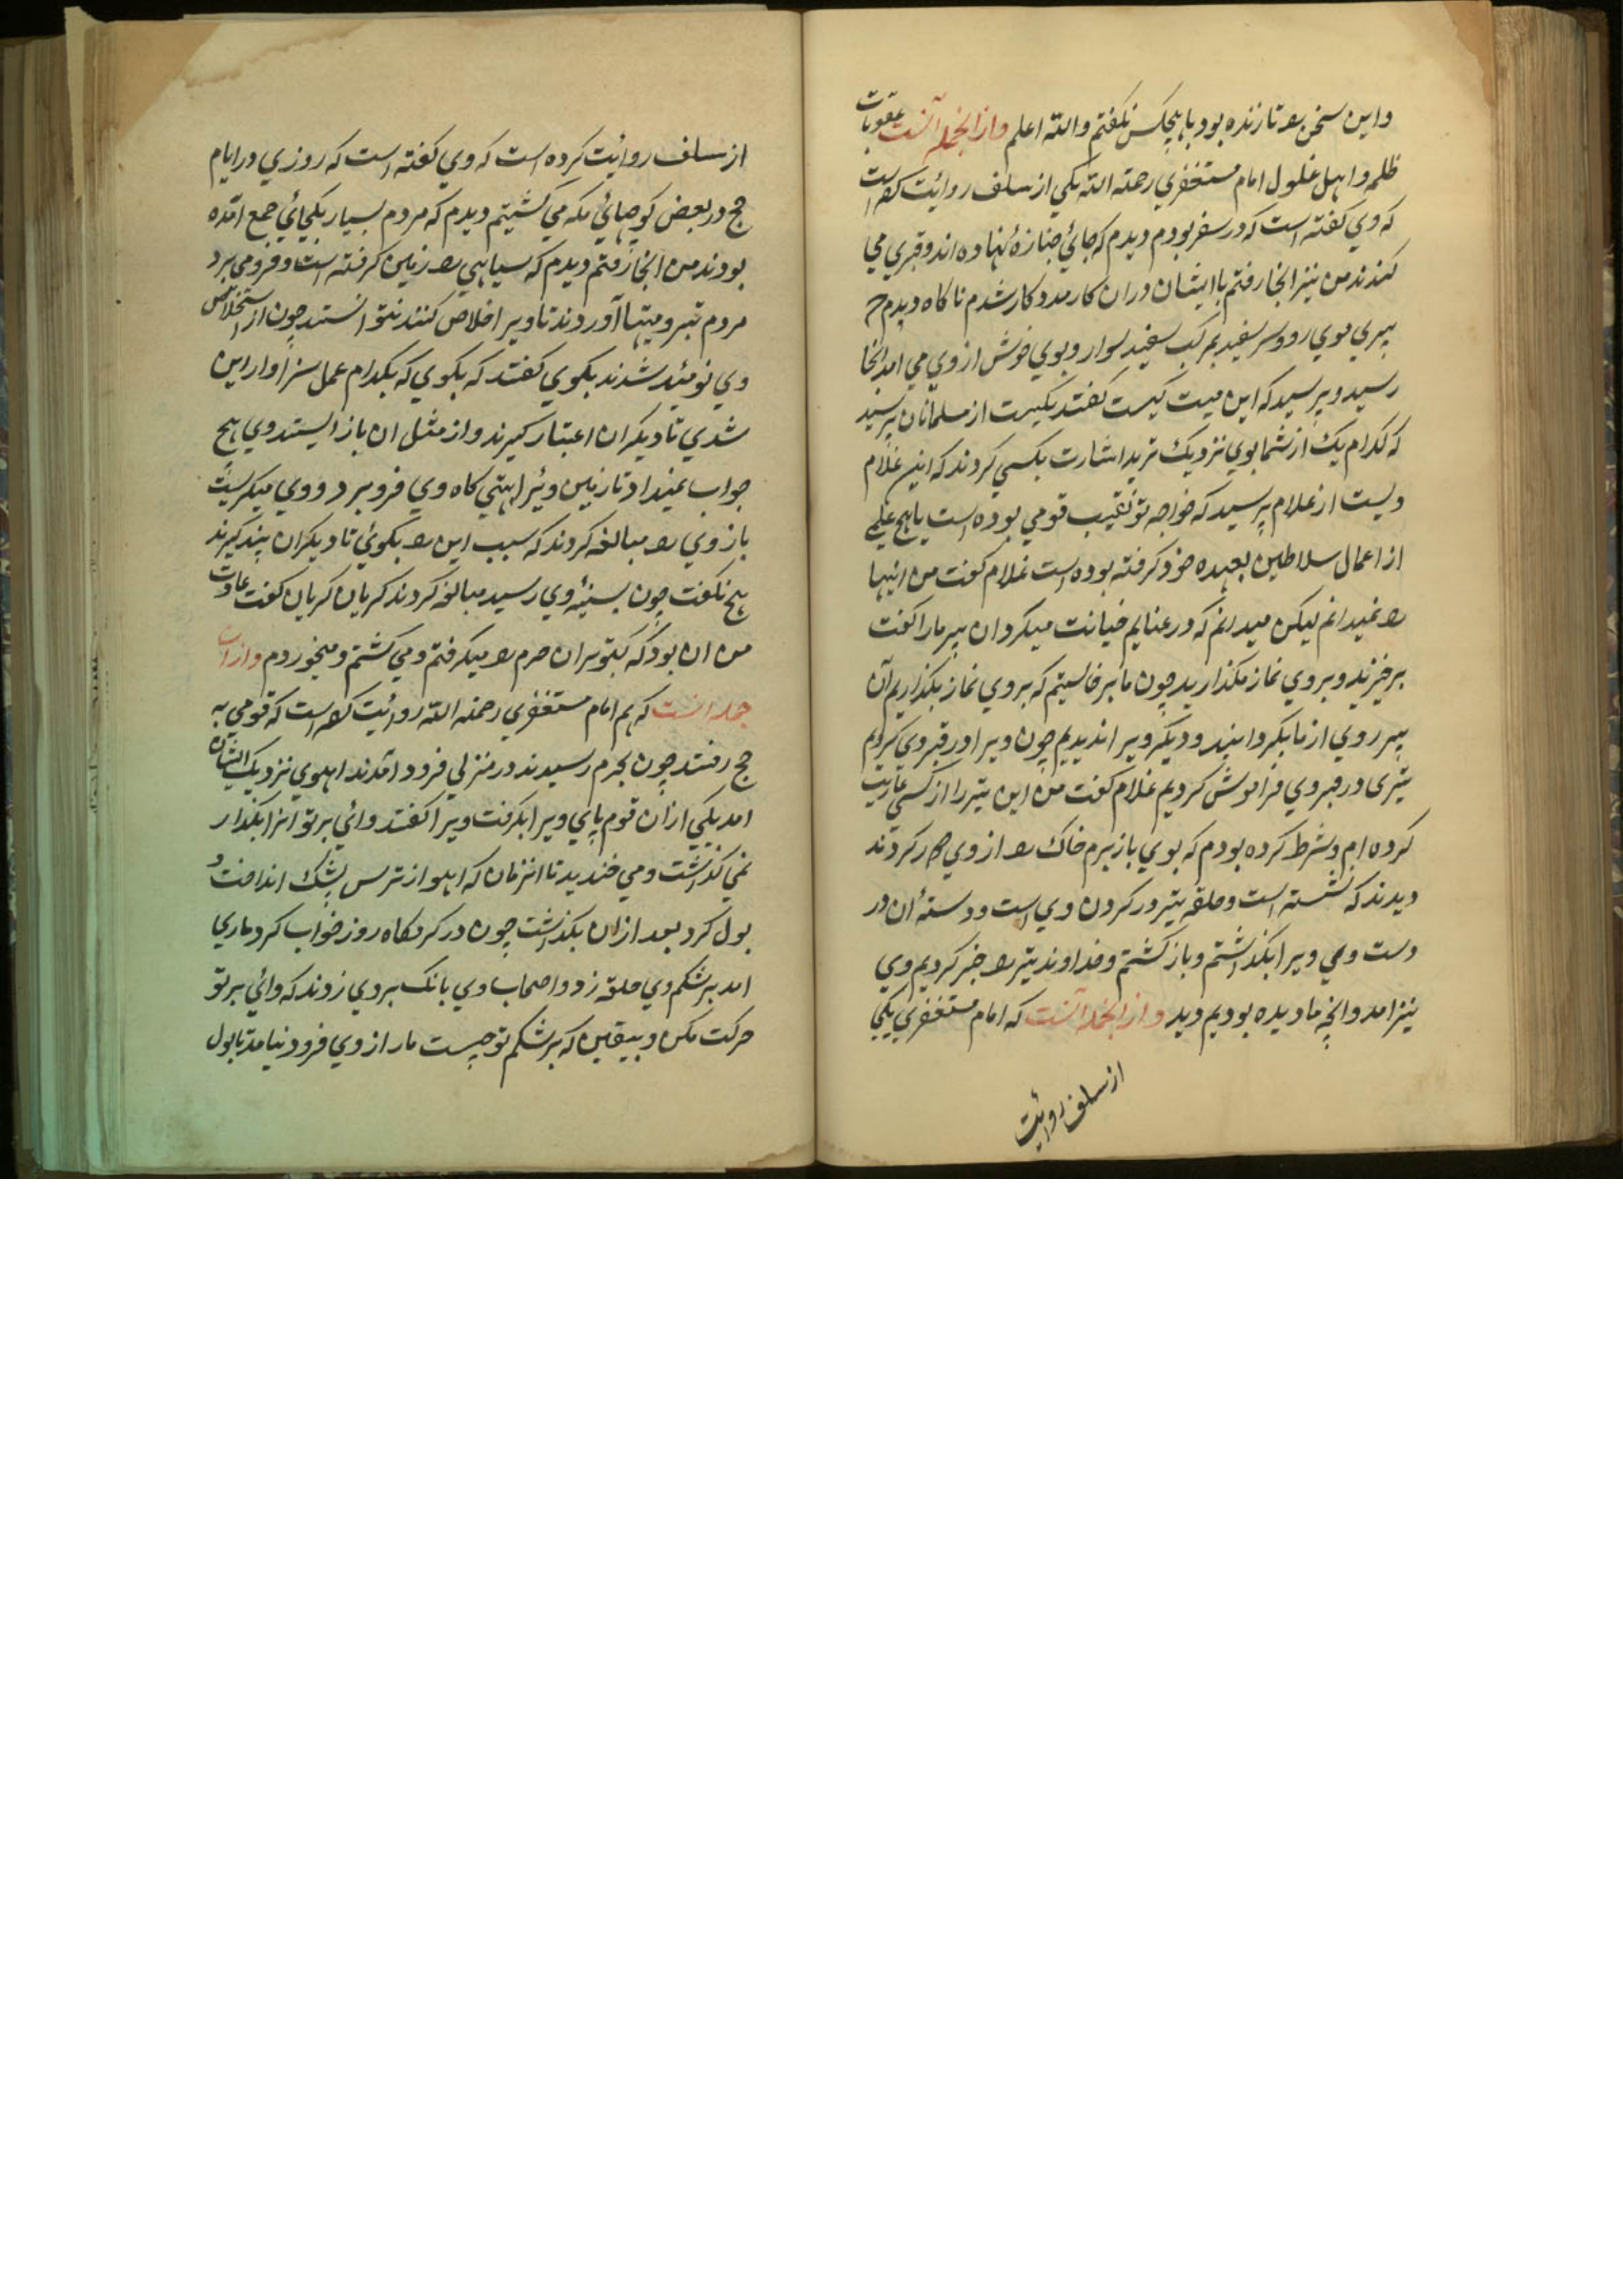 واین سخن را تا زنده بود با هیچکس نگفتم والله اعلم وازانجمله آنست عقوبات
ظلمه واهل غلول امام مستغفري رحمة الله یکي از سلف روائت کرده است
که وي گفته است که در سفر بودم دیدم که جائي جنازهٔ نهاده اند وقبري مي
کنند من نیز انجا رفتم با ایشان دران کار مدد کار شدم ناکاه دیدم که
پیري موي رو وسر سفید بمرکب سفید سوار وبوي خوش از وي مي امد انجا
رسید وپرسید که این میت کیست گفتند یکیست از مسلمانان پرسید
که کدام یک از شما بوي نزدیک ترید اشارت بکسي کردند که این غلام
ویست از غلام پرسید که خواجه تو نقیب قومي بوده است یا هیچ عملي
از اعمال سلاطین بعهده خود گرفته بوده است غلام گفت من اینها
را نمیدانم لیکن میدانم که در غنایم خیانت میکرد ان پیر مارا گفت
برخیزند وبروي نماز مگذارید چون ما برخاستیم که بروي نماز بگذاریم آن
پیر روي از ما بگردانید ودیگر ویرا ندیدیم چون ویرا در قبر وي کردیم
تبری در قبر وي فراموش کردیم غلام گفت من این تبر را از کسي عاریت
کرده ام وشرط کرده بودم که بوي باز برم خاک را از وي دور کردند
دیدند که نشسته است وحلقه تبر در کردن وي است ودسته ان در
دست وي ویرا بگذاشتم وباز گشتم وخداوند تبر را خبر کردیم وي
نیز امد وانچه ما دیده بودیم دید وازانجمله آنست که امام مستغفري یکي
از سلف روائت
از سلف روائت کرده است که وي گفته است که روزي در ایام
حج در بعض کوچهائي مکه مي گشتیم دیدم که مردم بسیار بیکجائي جمع امده
بودند من انجا رفتم دیدم که سیاهي را زمین گرفته است وفرو مي برد
مردم تبر ومیتها آوردند تا ویرا خلاص کنند نتوانستند چون از استخلاص
وي نومید شدند بگوي گفتند که بگوي که بکدام عمل سزاوار این
شدي تا دیگران اعتبار گیرند واز مثل ان باز ایستند وي هیچ
جواب نمیداد تا زمین ویرا تهي کاه وي فرو برد ووي میگریست
باز وي را مبالغه کردند که سبب این را بگوئي تا دیگران پند گیرند
هیچ نگفت چون بسینه وي رسید مبالغه کردند گریان گریان گفت عادت
من ان بود که کبوتران حرم را میگرفتم ومي کشتم ومیخوردم وازان
جمله انست که هم امام مستغفري رحمة الله روائت کرده است که قومي به
حج رفتند چون بحرم رسیدند در منزلي فرود امدند اهوي نزدیک ایشان
امد یکي ازان قوم پاي ویرا بگرفت ویرا گفتند وائي بر تو انرا بگذار
نمي گذاشت ومي خندید تا انزمان که اهو از ترس پشک انداخت و
بول کرد بعد ازان بگذاشت چون در گرمکاه روز خواب کرد ماري
امد بر شکم وي حلقه زد واصحاب وي بانک بر وي زدند که وائي بر تو
حرکت مکن وببین که بر شکم تو چیست مار از وي فرود نیامد تا بول